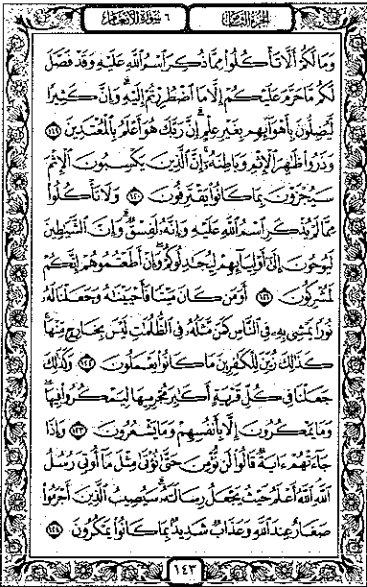 الجزء الثامن
٦ سورة الأنعام
وَمَا لَكُمْ أَلَّا تَأْكُلُوا۟ مِمَّا ذُكِرَ ٱسْمُ ٱللَّهِ عَلَيْهِ وَقَدْ فَصَّلَ
لَكُم مَّا حَرَّمَ عَلَيْكُمْ إِلَّا مَا ٱضْطُرِرْتُمْ إِلَيْهِ وَإِنَّ كَثِيرًا
لَّيُضِلُّونَ بِأَهْوَآئِهِم بِغَيْرِ عِلْمٍ إِنَّ رَبَّكَ هُوَ أَعْلَمُ بِٱلْمُعْتَدِينَ ١١٩
وَذَرُوا۟ ظَٰهِرَ ٱلْإِثْمِ وَبَاطِنَهُۥٓ إِنَّ ٱلَّذِينَ يَكْسِبُونَ ٱلْإِثْمَ
سَيُجْزَوْنَ بِمَا كَانُوا۟ يَقْتَرِفُونَ ١٢٠ وَلَا تَأْكُلُوا۟
مِمَّا لَمْ يُذْكَرِ ٱسْمُ ٱللَّهِ عَلَيْهِ وَإِنَّهُۥ لَفِسْقٌ وَإِنَّ ٱلشَّيَٰطِينَ
لَيُوحُونَ إِلَىٰٓ أَوْلِيَآئِهِمْ لِيُجَٰدِلُوكُمْ وَإِنْ أَطَعْتُمُوهُمْ إِنَّكُمْ
لَمُشْرِكُونَ ١٢١ أَوَمَن كَانَ مَيْتًا فَأَحْيَيْنَٰهُ وَجَعَلْنَا لَهُۥ
نُورًا يَمْشِى بِهِۦ فِى ٱلنَّاسِ كَمَن مَّثَلُهُۥ فِى ٱلظُّلُمَٰتِ لَيْسَ بِخَارِجٍ مِّنْهَا
كَذَٰلِكَ زُيِّنَ لِلْكَٰفِرِينَ مَا كَانُوا۟ يَعْمَلُونَ ١٢٢ وَكَذَٰلِكَ
جَعَلْنَا فِى كُلِّ قَرْيَةٍ أَكَٰبِرَ مُجْرِمِيهَا لِيَمْكُرُوا۟ فِيهَا
وَمَا يَمْكُرُونَ إِلَّا بِأَنفُسِهِمْ وَمَا يَشْعُرُونَ ١٢٣ وَإِذَا
جَآءَتْهُمْ ءَايَةٌ قَالُوا۟ لَن نُّؤْمِنَ حَتَّىٰ نُؤْتَىٰ مِثْلَ مَآ أُوتِىَ رُسُلُ
ٱللَّهِ ٱللَّهُ أَعْلَمُ حَيْثُ يَجْعَلُ رِسَالَتَهُۥ سَيُصِيبُ ٱلَّذِينَ أَجْرَمُوا۟
صَغَارٌ عِندَ ٱللَّهِ وَعَذَابٌ شَدِيدٌۢ بِمَا كَانُوا۟ يَمْكُرُونَ ١٢٤
١٤٣